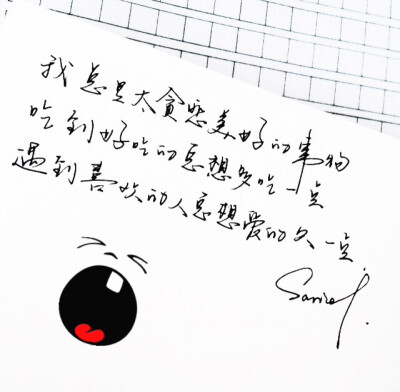 我总是太贪恋美好的事物
吃到好吃的总想多吃一点
遇到喜欢的人总想爱的久一点